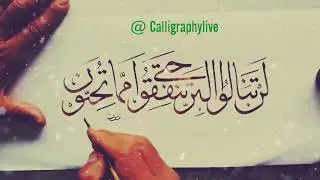 @ Calligraphylive
لن تنالوا البر حتى تنفقوا مما تحبون